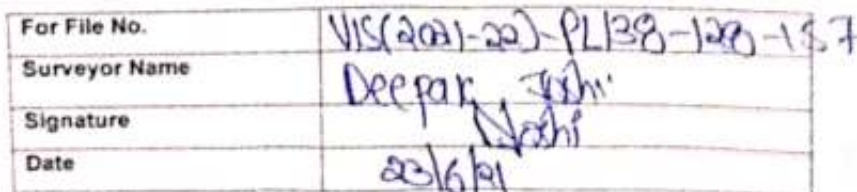 For File No. VIS(2021-22)-PL138-128-157
Surveyor Name Deepak Joshi
Signature Joshi
Date 23/6/21